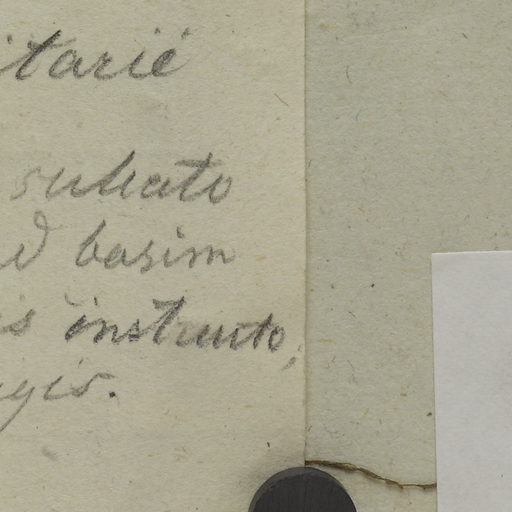 itarié
sulcato
d basim
is instructo,
ugis.